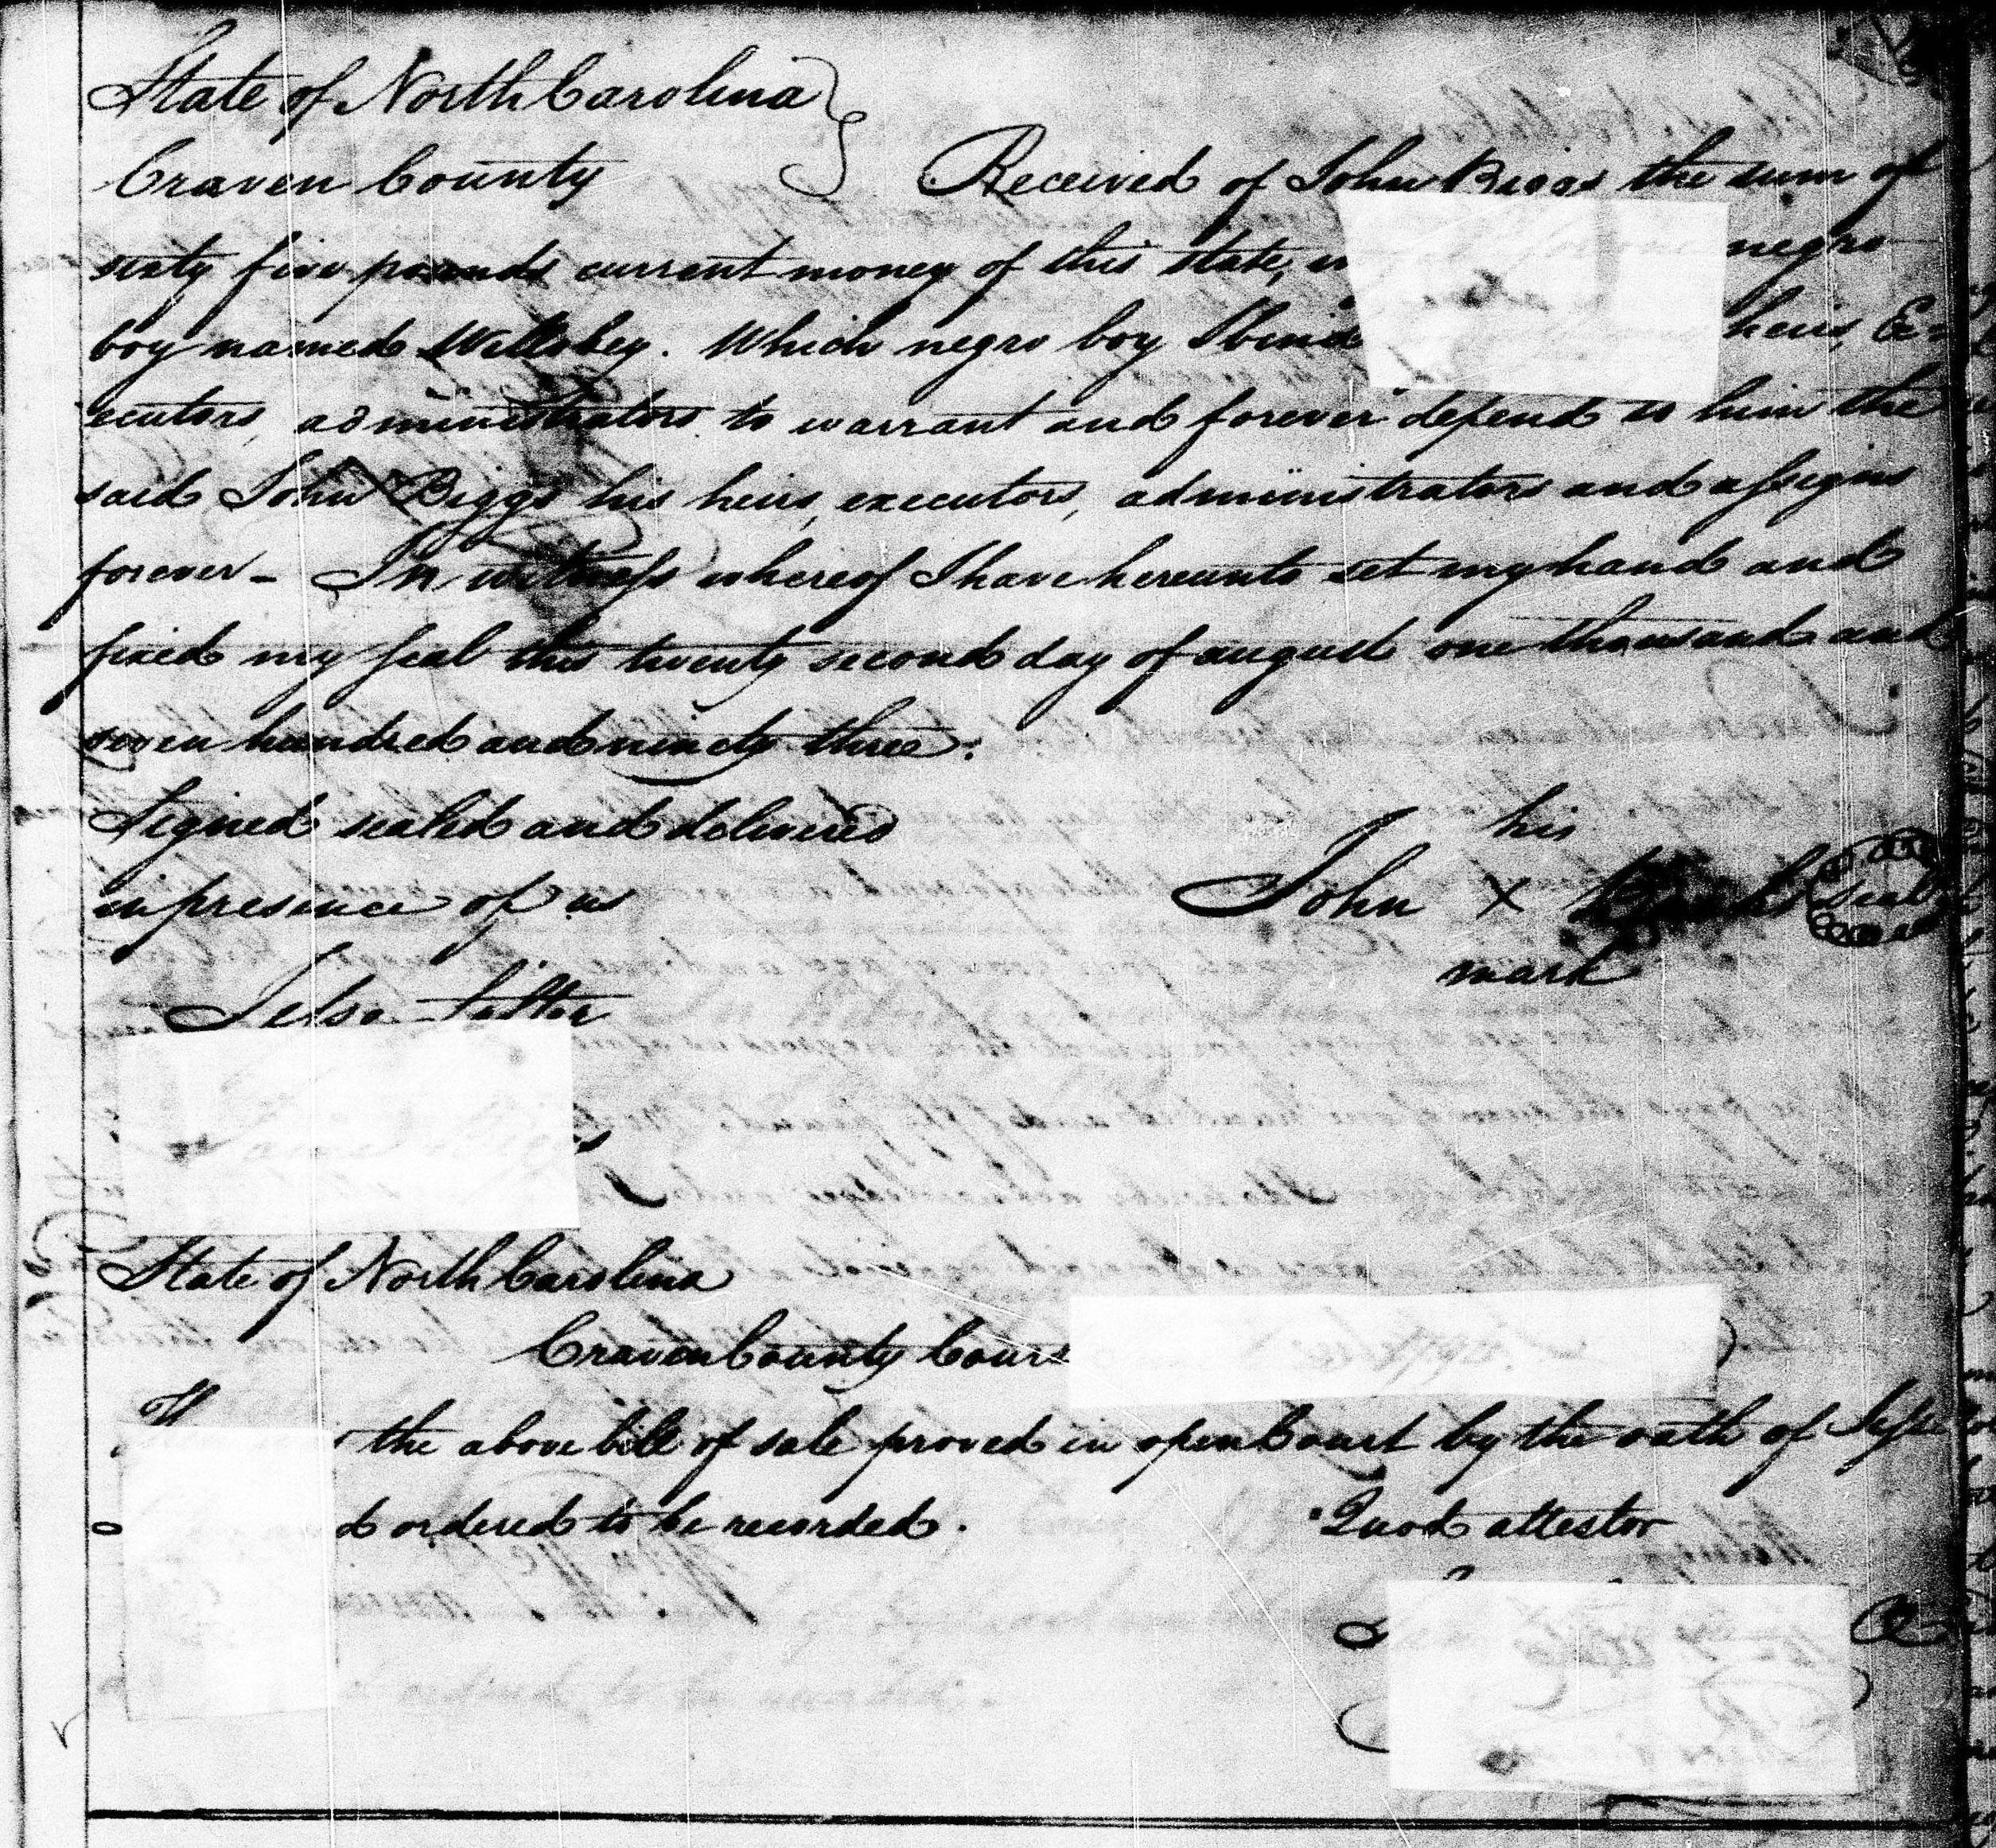 State of North Carolina
Craven County Received of John Biggs the sum of
sixty five pounds current money of this state, in negro
boy named Willobey. Which negro boy I bind heirs, Ex=
ecutors, administrators to warrant and forever defend to him the
said John Biggs his heirs, executors, administrators and assigns
forever - In witness whereof I have hereunto set my hand and
fixed my seal this twenty second day of august one thousand and
seven hundred and ninety three:
Signed sealed and delivered his
in presence of us John X seal
mark
State of North Carolina
Craven County Court
the above bill of sale proved in open Court by the oath of Jesse
d ordered to be recorded. Quod attestor